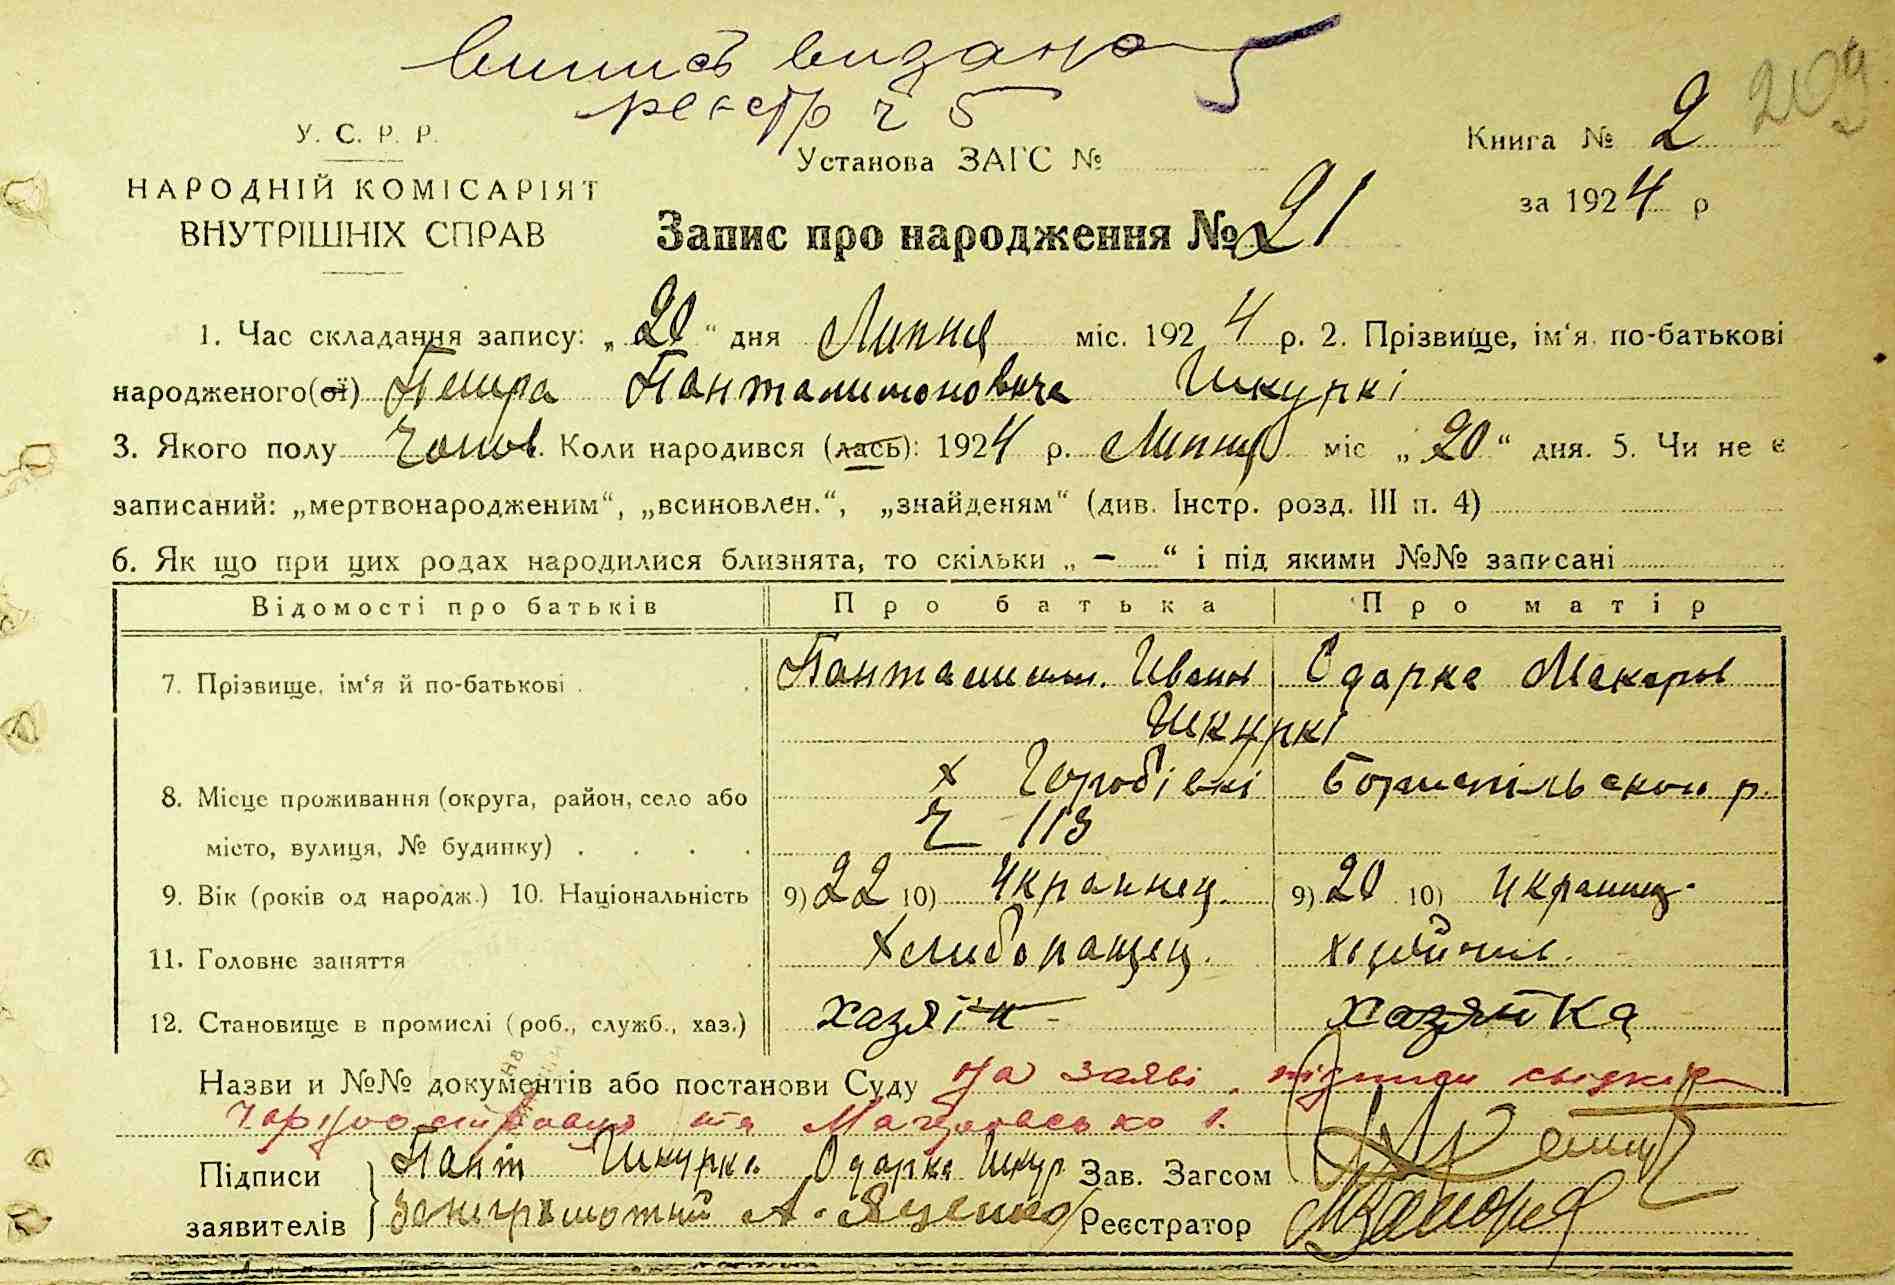 Випись видано 5
реєстр ч 5
209
У. С. Р. Р.
НАРОДНІЙ КОМІСАРІЯТ
ВНУТРІШНІХ СПРАВ
Установа ЗАГС №
Книга № 2
за 1924 р
Запис про народження № 21
1. Час складання запису: „20“ дня Липня міс. 1924 р. 2. Прізвище, ім‘я, по-батькові
народженого(ої) Петра Панталимоновича Шкуркі
3. Якого полу чолов. Коли народився (лась): 1924 р. Липня міс „20“ дня. 5. Чи не є
записаний: „мертвонародженим“, „всиновлен.“, „знайденям“ (див. Інстр. розд. III п. 4)
6. Як що при цих родах народилися близнята, то скільки „ – “ і під якими №№ записані
Відомості про батьків Про батька Про матір
7. Прізвище, ім‘я й по-батькові Панталимон. Иванов Одарка Макаров
Шкуркі
8. Місце проживання (округа, район, село або х Горобівкі Бориспільскои р.
місто, вулиця, № будинку) ч 113
9. Вік (років од народж.) 10. Національність 9) 22 10) Украинец. 9) 20 10) Украинц.
11. Головне заняття Хлиборащец.
12. Становище в промислі (роб., служб., хаз.) хазяїн хазяйка
Назви и №№ документів або постанови Суду на заяві, підписи свідків
та
Підписи Пант Шкурка Одарка Шкур Зав. Загсом
заявителів за неграмотний А. Яценко Реєстратор